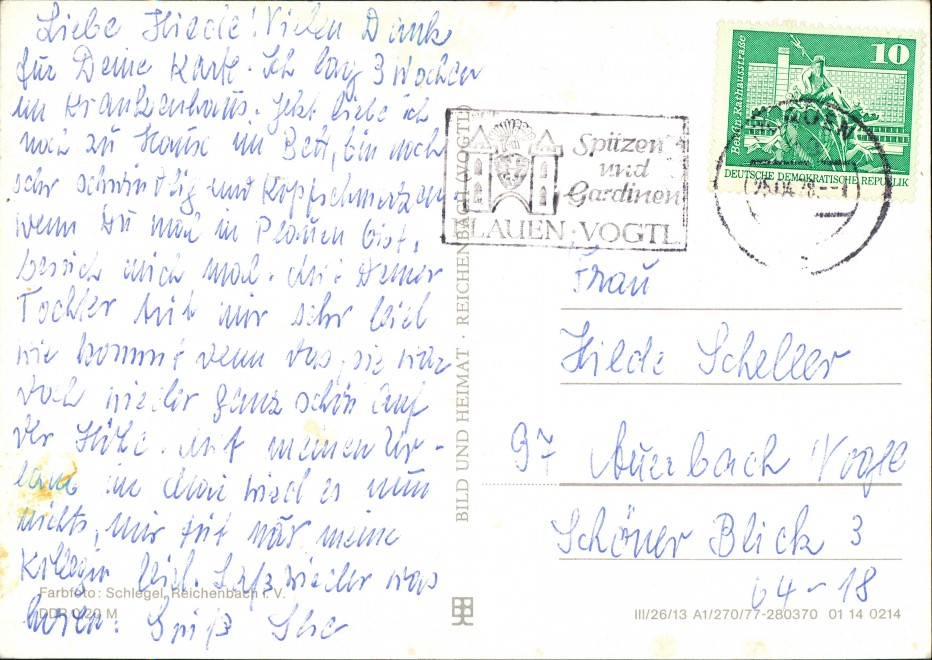 Liebe Hilde! Vielen Dank
für Deine Karte. Ich lag 3 Wochen
im Krankenhaus. Jetzt liege ich
noch zu Hause im Bett, bin noch
sehr schwindlig und Kopfschmerzen
wenn Du mal in Plauen bist,
besuch mich mal. Mit Deiner
Tochter tut mir sehr leid
wie kommt denn das, sie war
doch wieder ganz schön auf
der Höhe. Mit meinen Ur-
laub im Mai wird es nun
nichts, mir tut nur meine
Kollegin leid. Laß wieder was
hören. Gruß
Farbfoto: Schlegel, Reichenbach i. V.
DDR 0,20 M
BILD UND HEIMAT · REICHENBACH (VOGTL)
Spitzen
und
Gardinen
PLAUEN · VOGTL.
10
Berlin, Rathausstraße
DEUTSCHE DEMOKRATISCHE REPUBLIK
Frau
Hilde Scheller
97 Auerbach Vogtl
Schöner Blick 3
64-18
III/26/13 A1/270/77-280370 01 14 0214